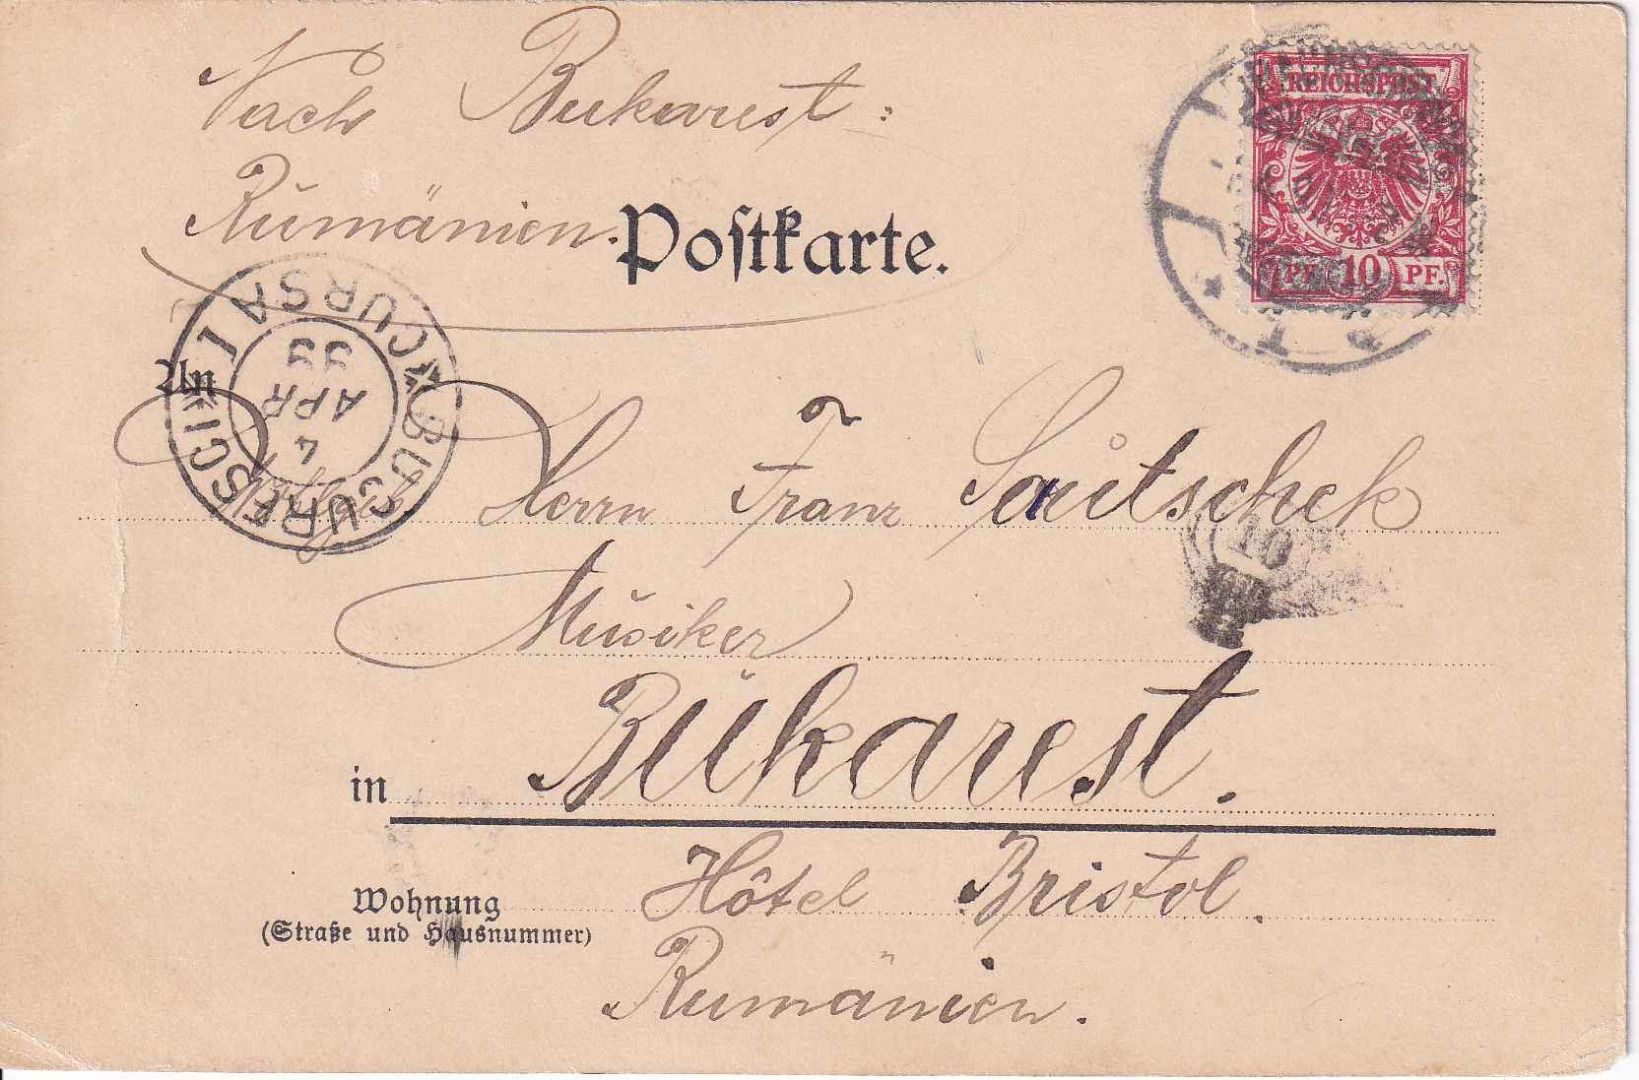 Nach Bukarest:
Rumänien.
REICHSPOST
PF. 10 PF.
Postkarte.
BUCURESCI * CURSA I *
4
APR
99
An
Herrn Franz Sautschek
10
Musiker
in Bukarest.
Wohnung Hôtel Bristol.
(Straße und Hausnummer)
Rumänien.